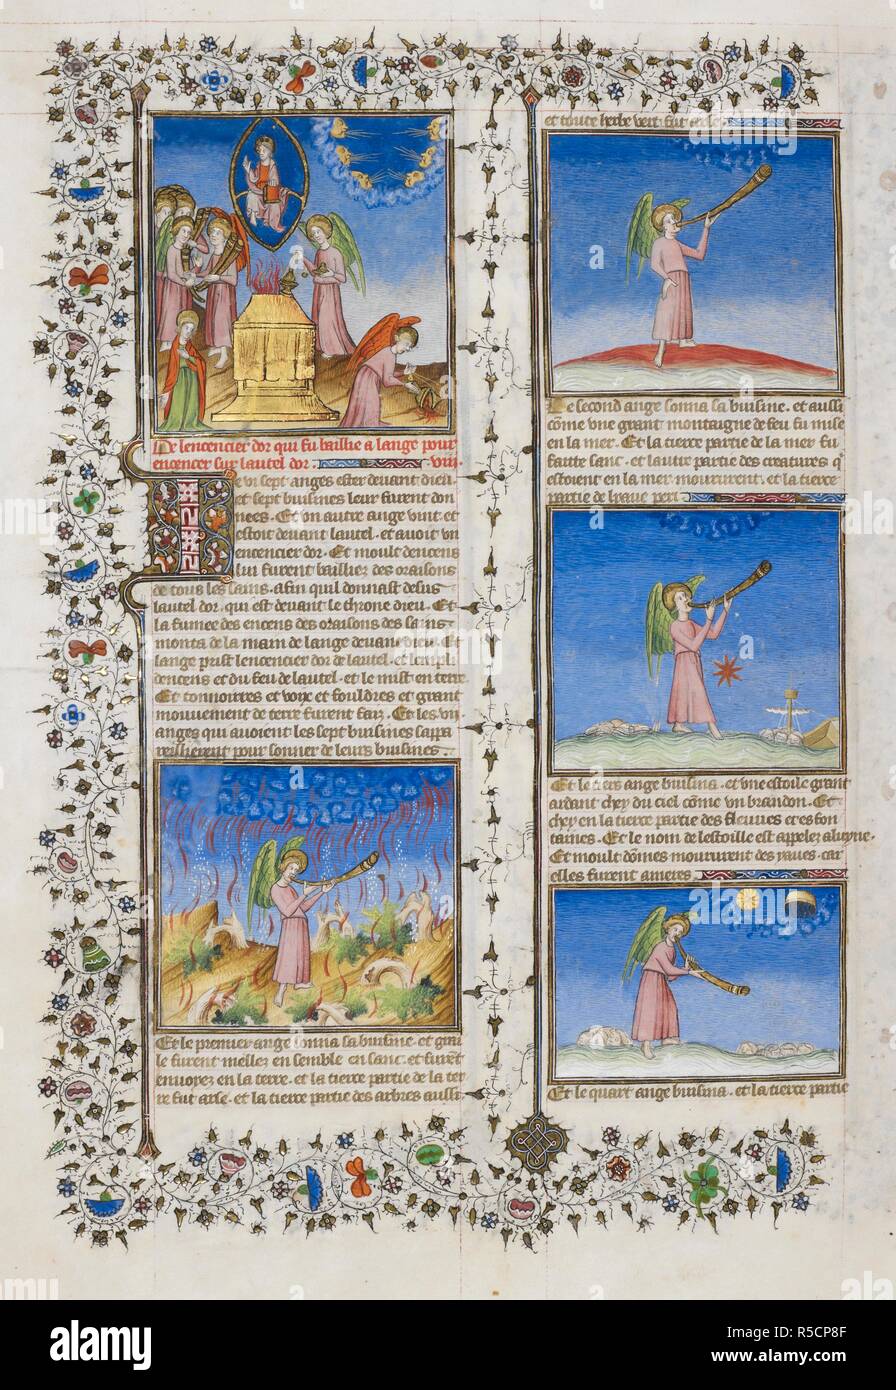 De lencencier dor qui fu baillie a lange pour
encencer sur lautel dor. viii
Je vi sept anges ester devant dieu.
et sept buisines leur furent don
nees. Et un autre ange vint. et
estoit devant lautel. et avoit un
encencier dor. Et moult dencens
lui furent bailliez des oraisons
de tous les sains. afin quil donnast desus
lautel dor. qui est devant le throne dieu. Et
la fumee des encens des oraisons des sains
monta de la main de lange devant dieu. Et
lange prist lencencier dor de lautel. et lempli
dencens et du feu de lautel. et le mist en terre
Et tonnoirres et voix et fouldres et grant
mouvement de terre furent faiz. Et les vii
anges qui avoient les sept buisines sappa
reillierent pour sonner de leurs buisines.
Et le premier ange sonna sa buisine. et gresl
le furent mellez en semble en sanc. et furent
envoyez en la terre. et la tierce partie de la ter
re fut arse. et la tierce partie des arbres aussi
et toute herbe vert fut arse.
Le second ange sonna sa buisine. et aussi
côme une grant montaigne de feu fu mise
en la mer. Et la tierce partie de la mer fu
faitte sanc. et lautre partie des creatures q̃
estoient en la mer moururent. et la tierce
partie de leaue peri
Et le tiers ange buisina. et une estoile grant
ardant chey du ciel côme un brandon. Et
chey en la tierce partie des fleuves et es fon
taines. Et le nom de lestoille est appelez aluyne.
Et moult dômes moururent des yaues. car
elles furent ameres.
Et le quart ange buisina. et la tierce partie
alamy
Image ID: R5CP8F
www.alamy.com